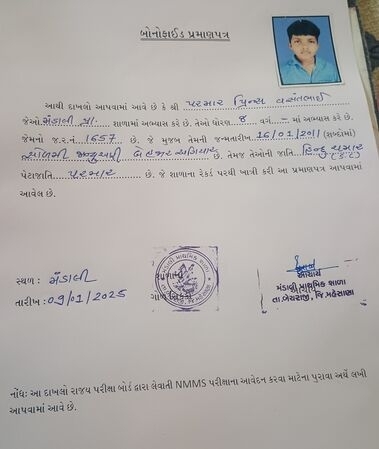 બોનોફાઈડ પ્રમાણપત્ર
આથી દાખલો આપવામાં આવે છે કે શ્રી પરમાર પ્રિન્સ વસંતભાઈ
જેઓ મંડાલી પ્રા. શાળામાં અભ્યાસ કરે છે. તેઓ ધોરણ 8 વર્ગ - માં અભ્યાસ કરે છે.
જેમનો જ.ર.નં. 1657 છે. જે મુજબ તેમની જન્મતારીખ 16/01/2011 (શબ્દોમાં)
સોળમી જાન્યુઆરી બે હજાર અગિયાર છે. તેમજ તેઓની જાતિ હિન્દુ ચમાર
પેટાજાતિ પરમાર છે. જે શાળાના રેકર્ડ પરથી ખાત્રી કરી આ પ્રમાણપત્ર આપવામાં
આવેલ છે.
સ્થળ : મંડાલી
તારીખ : 09/01/2025
આચાર્ય
મંડાલી પ્રાથમિક શાળા
તા.બેચરાજી, જિ.મહેસાણા
નોંધ: આ દાખલો રાજય પરીક્ષા બોર્ડ દ્વારા લેવાતી NMMS પરીક્ષાના આવેદન કરવા માટેના પુરાવા અર્થે લખી
આપવામાં આવે છે.